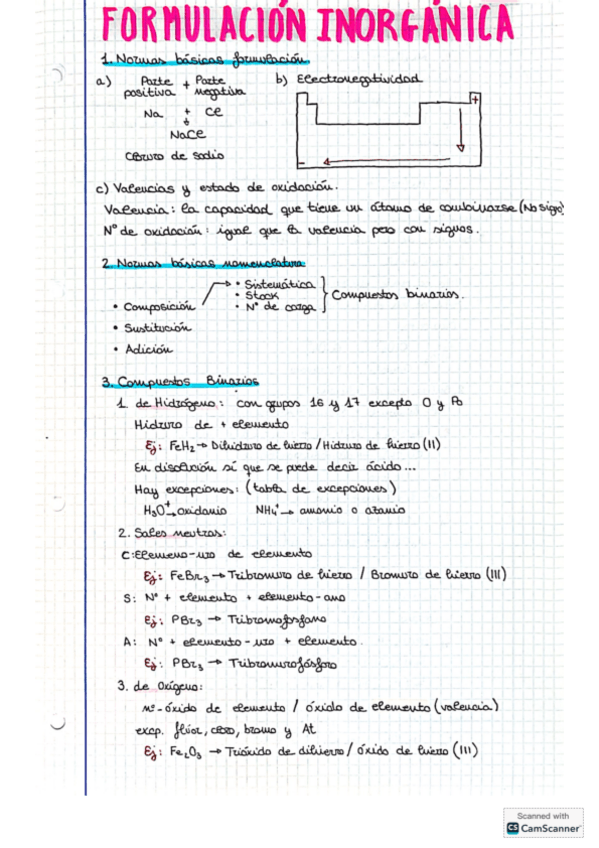 FORMULACIÓN INORGÁNICA
1. Normas básicas formulación.
a) Parte positiva + Parte negativa
b) Electronegatividad
Na + Cl
+
-
NaCl
Cloruro de sodio
c) Valencias y estado de oxidación.
Valencia: la capacidad que tiene un átomo de combinarse (No signo)
Nº de oxidación: igual que la valencia pero con signos.
2. Normas básicas nomenclatura
• Composición → • Sistemática
• Stock
• Nº de carga
} Compuestos binarios.
• Sustitución
• Adición
3. Compuestos Binarios
1. de Hidrógeno: con grupos 16 y 17 excepto O y Po
Hidruro de + elemento
Ej: FeH₂ → Dihidruro de hierro / Hidruro de hierro (II)
En disolución sí que se puede decir ácido...
Hay excepciones: (tabla de excepciones)
H₃O⁺ → oxidanio NH₄⁺ → amonio o azanio
2. Sales neutras:
C: Elemeno-uro de elemento
Ej: FeBr₃ → Tribromuro de hierro / Bromuro de hierro (III)
S: Nº + elemento + elemento-ano
Ej: PBr₃ → Tribromofosfano
A: Nº + elemento-uro + elemento.
Ej: PBr₃ → Tribromurofósforo
3. de Oxígeno:
nº-óxido de elemento / óxido de elemento (valencia)
excp. flúor, cloro, bromo y At
Ej: Fe₂O₃ → Trióxido de dihierro / óxido de hierro (III)
Scanned with
CS CamScanner